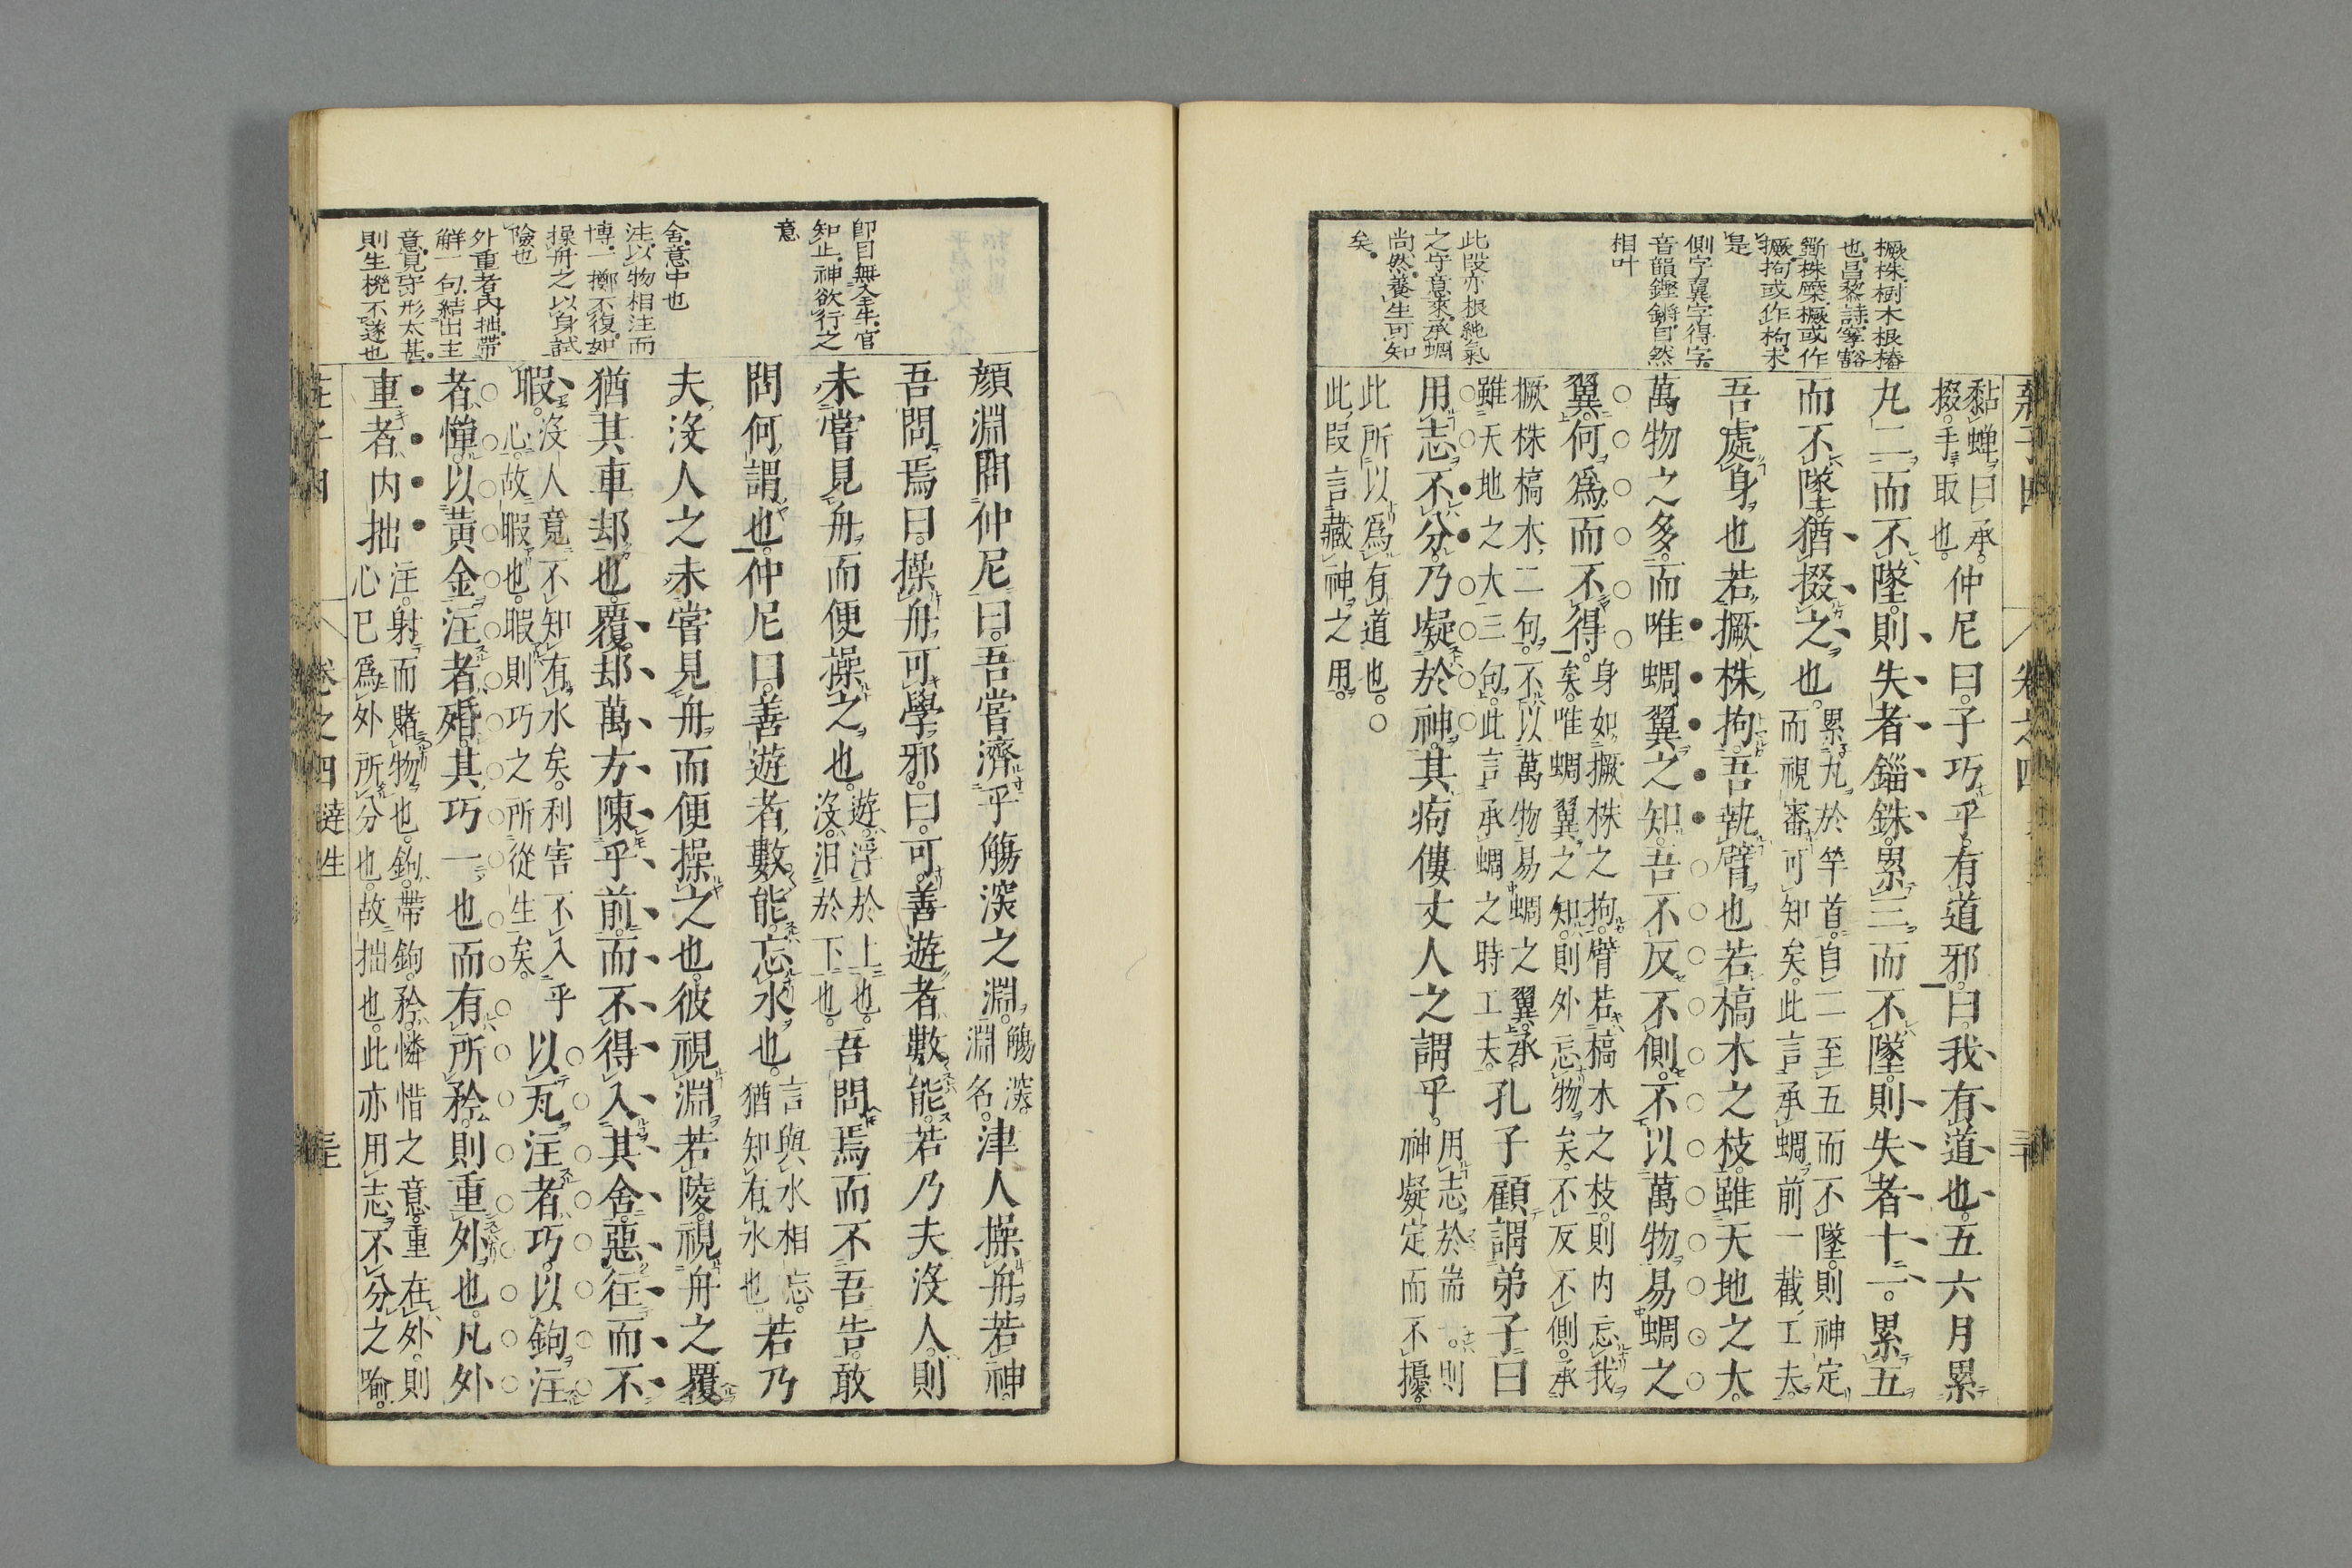 橛株樹木根樁
也。昌黎詩寧豁
斷株橜橛或作
撅拘或作枸未
是
側字翼字得字
音韻鏗鏘自然
相叶
此段亦根純氣
之守意來承蜩
尚然養生可知
矣。
黏蟬曰承。
掇。手取也。
仲尼曰。子巧乎。有道邪。曰。我有道也。五六月累
丸二而不墜。則失者錙銖。累三而不墜。則失者十一。累五
而不墜。猶掇之也。
累丸於竿首。自二至五而不墜。則神定
而視審可知矣。此言承蜩前一截工夫。
吾處身也。若撅株拘。吾執臂也。若槁木之枝。雖天地之大。
萬物之多。而唯蜩翼之知。吾不反不側。不以萬物易蜩之
翼。何爲而不得。
身如撅株之拘。臂若槁木之枝。則内忘我
矣。唯蜩翼之知。則外忘物矣。不反不側。承
撅株槁木二句。不以萬物易蜩之翼。承
雖天地之大三句。此言承蜩之時工夫。
孔子顧謂弟子曰
用志不分。乃凝於神。其痀僂丈人之謂乎。
用志於耑一。則
神凝定而不擾。
此所以爲有道也。○
此段言藏神之用。
即目無全牛。官
知止。神欲行之
意
舍。意中也
注。以物相注而
博。一擲不復。如
操舟之以身試
險也
外重者内拙。帶
觧一句。結出主
意。見守形太甚。
則生機不遂也
顏淵問仲尼曰。吾嘗濟乎觴深之淵。
觴深。
淵名。
津人操舟若神。
吾問焉曰。操舟可學邪。曰。可。善遊者數能。若乃夫沒人。則
未嘗見舟。而便操之也。
遊。浮於上也。
沒。汩於下也。
吾問焉而不吾告。敢
問何謂也。仲尼曰。善遊者數能。忘水也。
言與水相忘。
猶知有水也
若乃
夫沒人之未嘗見舟而便操之也。彼視淵若陵。視舟之覆。
猶其車却也。覆却萬方陳乎前。而不得入其舍。惡往而不
暇。
沒人竟不知有水矣。利害不入乎
心。故暇也。暇則巧之所從生矣。
以瓦注者巧。以鉤注
者憚。以黃金注者殙。其巧一也。而有所矜。則重外也。凡外
重者内拙
注。射而賭物也。鉤。帶鉤。矜。憐惜之意。重在外。則
心已爲外所分也。故拙也。此亦用志不分之喻。
莊子四
卷之四
達生